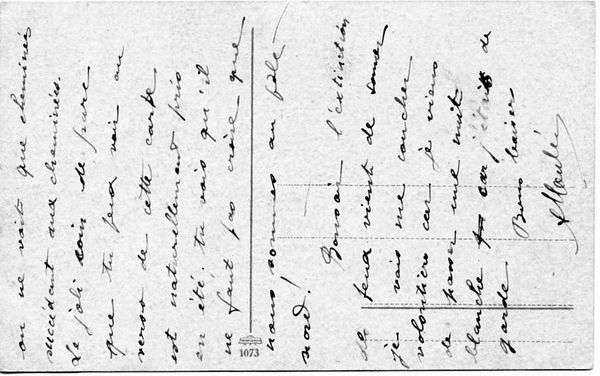 on ne voit que cheminées
succédant aux cheminées.
Le joli coin de parc
que tu peux voir au
verso de cette carte
est naturellement pris
en été. tu vois qu'il
ne faut pas croire que
nous sommes au pôle
nord!
Bonsoir l'extinction
des feux vient de sonner
je vais me coucher
volontiers car je viens
de passer une nuit
blanche car j'étais de
garde.
Bons baisers
1073